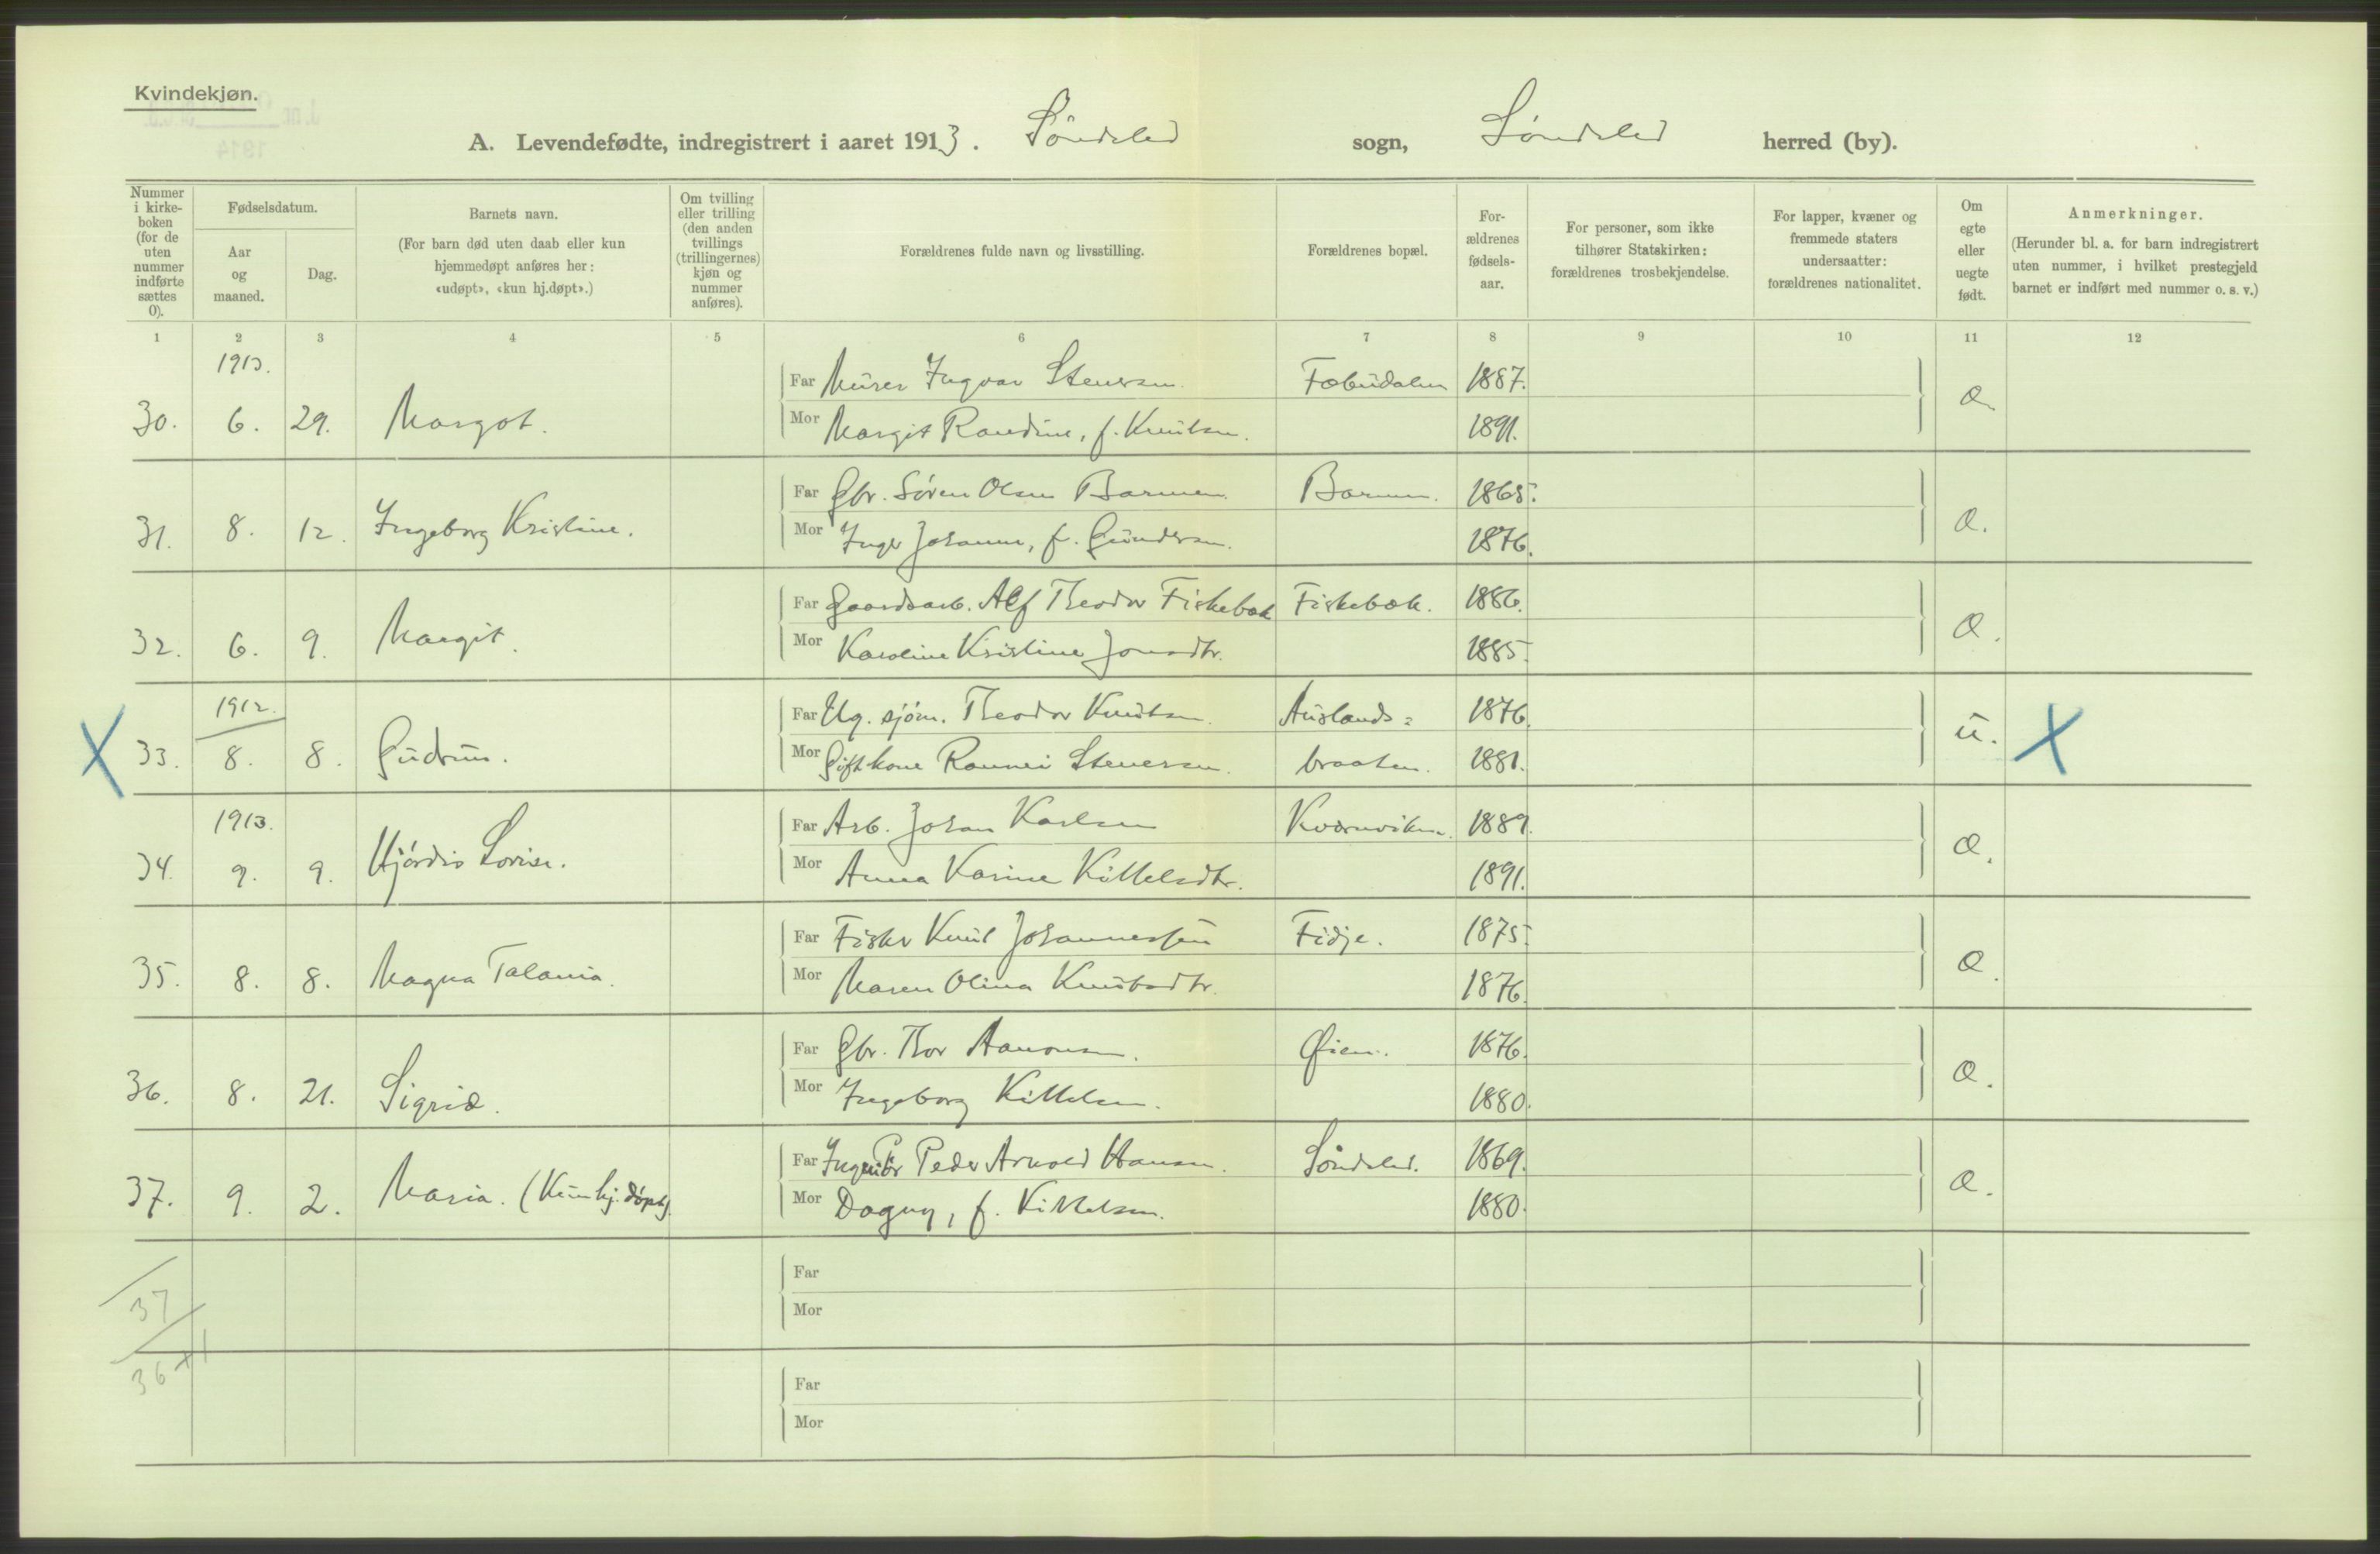 Kvindekjøn.
A. Levendefødte, indregistrert i aaret 1913. Söndeled sogn, Söndeled herred (by).
Nummer i kirke-boken (for de uten nummer indførte sættes 0).
Fødselsdatum.
Aar og maaned.
Dag.
Barnets navn.
(For barn død uten daab eller kun hjemmedøpt anføres her: «udøpt», «kun hj.døpt».)
Om tvilling eller trilling (den anden tvillings (trillingernes) kjøn og nummer anføres).
Forældrenes fulde navn og livsstilling.
Forældrenes bopæl.
For-ældrenes fødsels-aar.
For personer, som ikke tilhører Statskirken: forældrenes trosbekjendelse.
For lapper, kvæner og fremmede staters undersaatter: forældrenes nationalitet.
Om egte eller uegte født.
Anmerkninger.
(Herunder bl. a. for barn indregistrert uten nummer, i hvilket prestegjeld barnet er indført med nummer o. s. v.)
1 2 3 4 5 6 7 8 9 10 11 12
1913.
Far Murer Ingvar Stenersen. 1887.
30. 6. 29. Margot. Mor Margit Randine, f. Knutsen. 1891.
Far Gbr. Sören Olsen Barmen. Barmen. 1865.
31. 8. 12. Ingeborg Kristine. Mor Inger Johanne, f. Gundersen. 1876.
Far Gaardsarb. Alf Theodor Fiskebæk Fiskebæk. 1886.
32. 6. 9. Margit. Mor Karoline Kristine Jonsdtr. 1885.
1912.
Far Ug. sjöm. Theodor Knutsen. Auslands= 1876.
X 33. 8. 8. Gudrun. Mor Gift kone Rannei Stenersen. braaten. 1881. u. X
1913.
Far Arb. Johan Karlsen Kværnviken. 1889.
34. 9. 9. Hjördis Lovise. Mor Anna Karine Kittelsdtr. 1891.
Far Fisker Knut Johannessen Fidje. 1875.
35. 8. 8. Magna Talania. Mor Maren Olina Knutsdtr. 1876.
Far Gbr. Thor Aanonsen. Øien. 1876.
36. 8. 21. Sigrid. Mor Ingeborg Kittelsen. 1880.
Far Ingeniör Peder Arnold Hansen. Söndeled. 1869.
37. 9. 2. Maria. (Kun hj. döpt). Mor Dagny, f. Kittelsen. 1880.
Far
37
Mor
36 + 1
Far
Mor